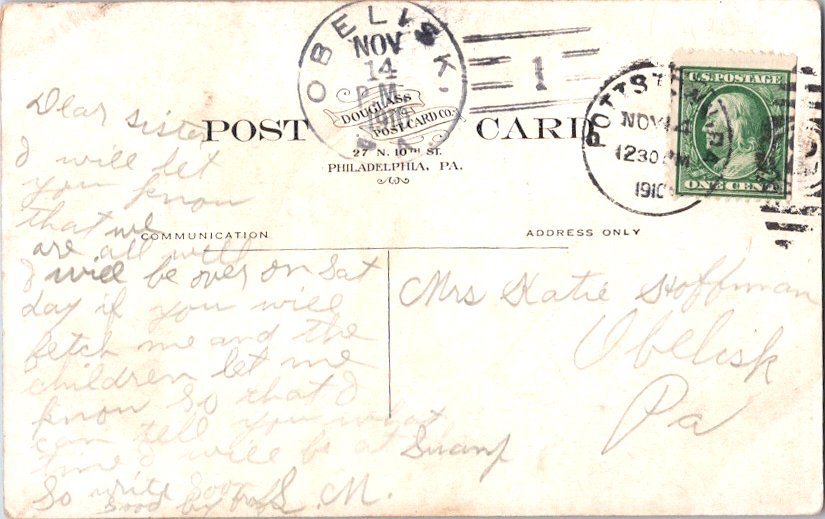 OBELISK
NOV
14
P.M.
1910
PA.
1
POTTSTOWN, PA.
NOV 14
1230 PM
1910
U.S. POSTAGE
ONE CENT
DOUGLASS
POST CARD CO.
POST CARD
27 N. 10TH ST.
PHILADELPHIA, PA.
COMMUNICATION
ADDRESS ONLY
Dear sister
I will let
you know
that we
are all well
I will be over on Sat
day if you will
fetch me and the
children let me
know so that I
can tell you what
time I will be at Swamp
So write soon
good by from S. M.
Mrs Katie Hoffman
Obelisk
Pa